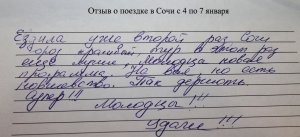 Отзыв о поездке в Сочи с 4 по 7 января
Ездила уже второй раз Сочи
город красивый, тур в этот раз
ещё лучше, Молодцы новая
программа. На всё но есть
Так держать.
Супер!!!
Молодцы!!!
Удачи!!!